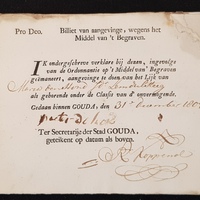 Pro Deo.
Billet van aangevinge, wegens het
Middel van 't Begraven.
IK ondergeschreve verklare bij dezen, ingevolge
van de Ordonnantie op 't Middel van Begraven
geëmaneert, aangevinge te doen van het Lijk van
als gehoorende onder de Classis van d' onvermogende.
Gedaan binnen GOUDA, den 31e december
Ter Secretarije der Stad GOUDA,
geteekent op datum als boven.